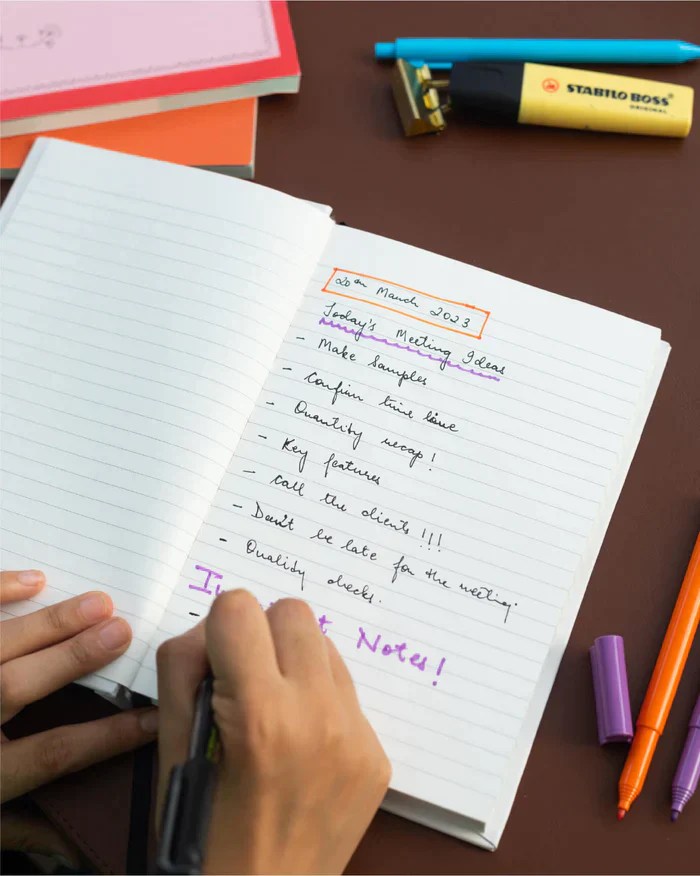 STABILO BOSS
ORIGINAL
20th March 2023
Today's Meeting Ideas
- Make Samples
- Confirm time
- Quantity recap!
- Key features
- Call the clients !!!
- Don't be late for the meeting.
- Quality checks.
Notes!
-